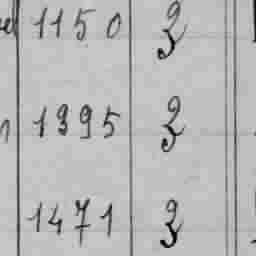 1150 3
1395 3
1471 3